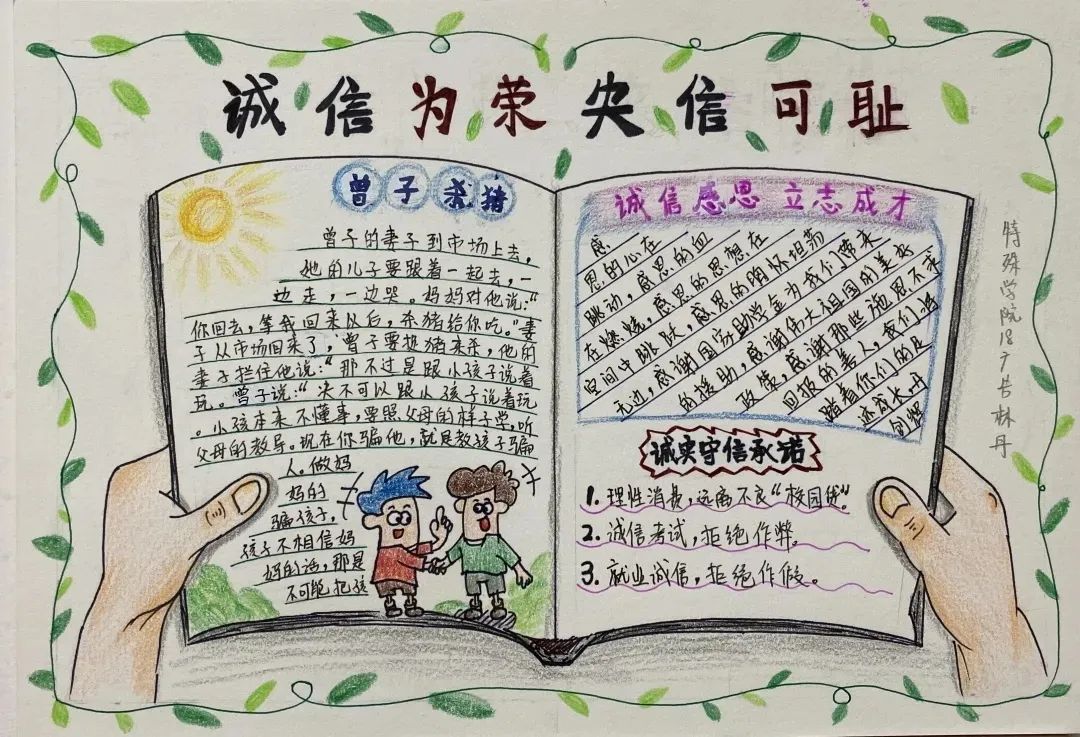 诚信为荣 失信可耻
曾子杀猪
曾子的妻子到市场上去，
她的儿子要跟着一起去，一
边走，一边哭。妈妈对他说：“
你回去，等我回来以后，杀猪给你吃。”妻
子从市场回来了，曾子要把猪来杀，他的
妻子拦住他说：“那不过是跟小孩子说着
玩。曾子说：“决不可以跟小孩子说着玩
。小孩本来不懂事，要照父母的样子学，听
父母的教导。现在你骗他，就是教孩子骗
人。做妈
妈的
骗孩子，
孩子不相信妈
妈的话，那是
不可能把孩
诚信感恩 立志成才
感
恩的心在
跳动，感恩的血
在燃烧，感恩的思想在
空间中跳跃，感恩的胸怀坦荡
无边，感谢国家助学金为我们带来
的援助，感谢伟大祖国的美好
政策，感谢那些施恩不求
回报的善人，我们将
踏着你们的足
诚实守信承诺
1. 理性消费，远离不良“校园贷”。
2. 诚信考试，拒绝作弊。
3. 就业诚信，拒绝作假。
特殊学院18广告林丹